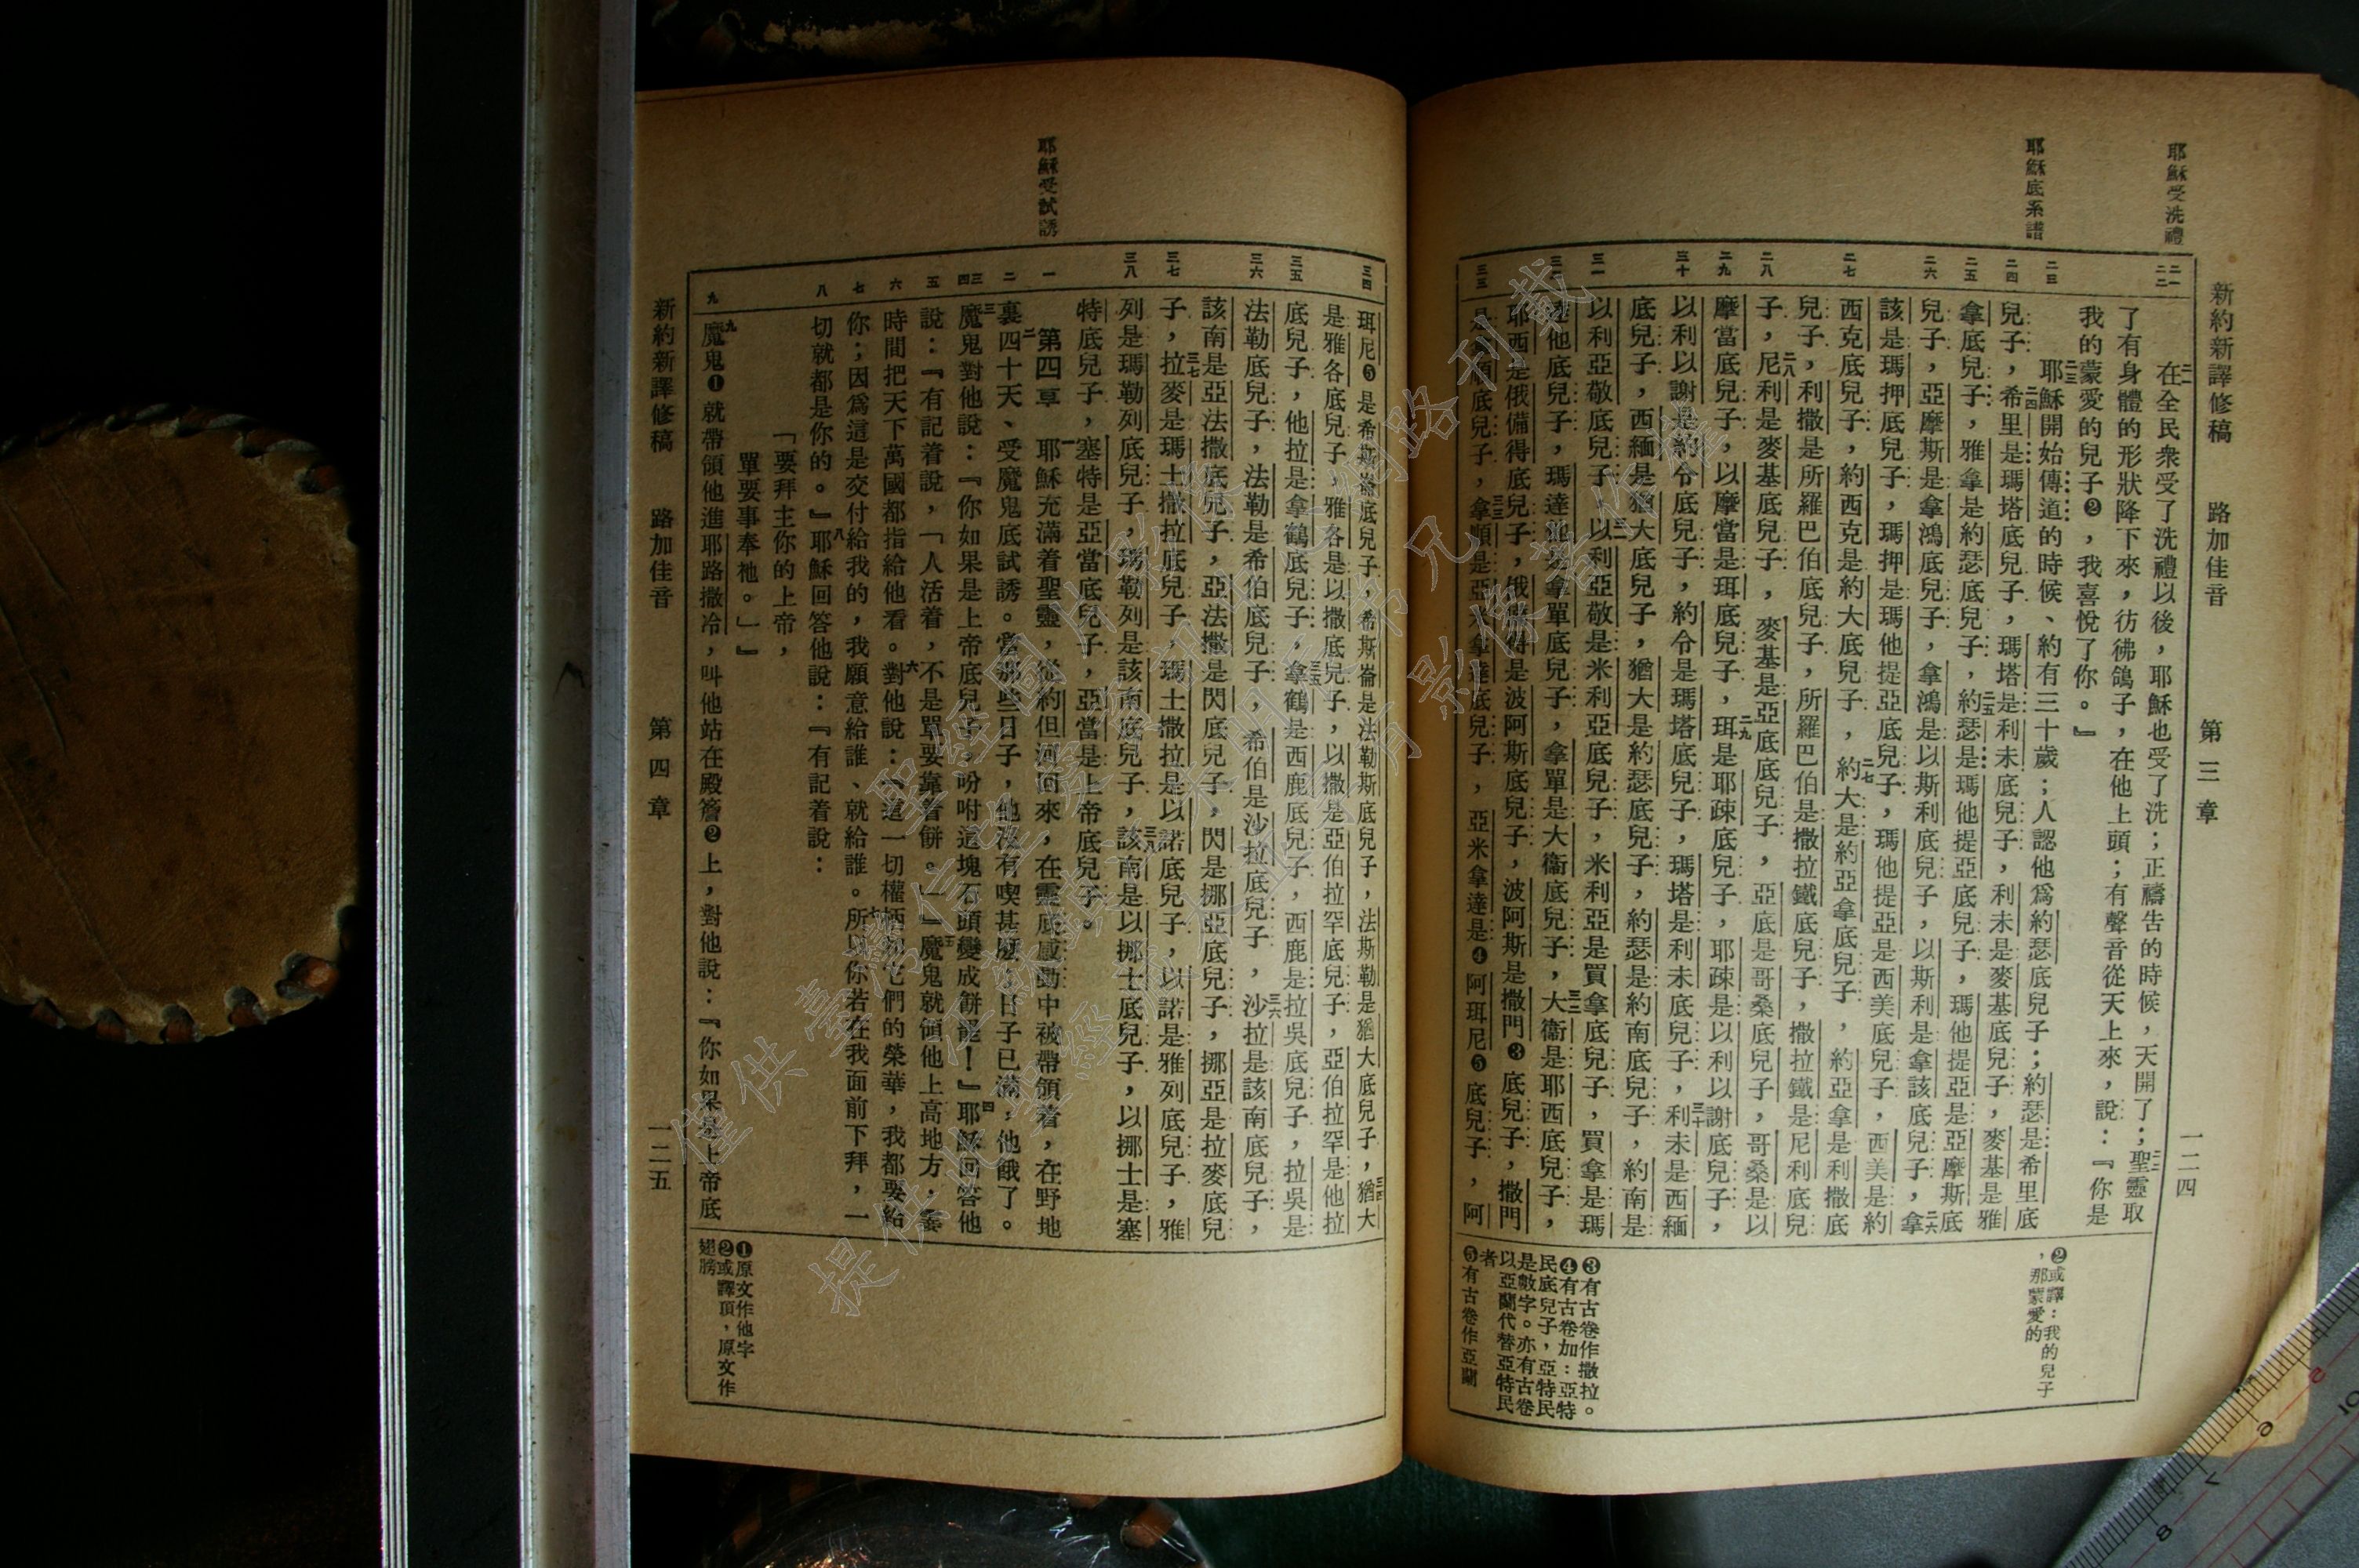 新約新譯修稿 路加佳音 第三章 一二四
耶穌受洗禮
耶穌底系譜
二一
二二
二三
二四
二五
二六
二七
二八
二九
三十
三一
三二
三三
二一在全民衆受了洗禮以後，耶穌也受了洗；正禱告的時候，天開了；二二聖靈取
了有身體的形狀降下來，彷彿鴿子，在他上頭；有聲音從天上來，說：『你是
我的蒙愛的兒子❷，我喜悅了你。』
二三耶穌開始傳道的時候、約有三十歲；人認他爲約瑟底兒子；約瑟是希里底
兒子，二四希里是瑪塔底兒子，瑪塔是利未底兒子，利未是麥基底兒子，麥基是雅
拿底兒子，雅拿是約瑟底兒子，二五約瑟是瑪他提亞底兒子，瑪他提亞是亞摩斯底
兒子，亞摩斯是拿鴻底兒子，拿鴻是以斯利底兒子，以斯利是拿該底兒子，二六拿
該是瑪押底兒子，瑪押是瑪他提亞底兒子，瑪他提亞是西美底兒子，西美是約
西克底兒子，約西克是約大底兒子，二七約大是約亞拿底兒子，約亞拿是利撒底
兒子，利撒是所羅巴伯底兒子，所羅巴伯是撒拉鐵底兒子，撒拉鐵是尼利底兒
子，二八尼利是麥基底兒子，麥基是亞底底兒子，亞底是哥桑底兒子，哥桑是以
摩當底兒子，以摩當是珥底兒子，二九珥是耶疎底兒子，耶疎是以利以謝底兒子，
以利以謝是約令底兒子，約令是瑪塔底兒子，瑪塔是利未底兒子，三十利未是西緬
底兒子，西緬是猶大底兒子，猶大是約瑟底兒子，約瑟是約南底兒子，約南是
以利亞敬底兒子，三一以利亞敬是米利亞底兒子，米利亞是買拿底兒子，買拿是瑪
達他底兒子，瑪達他是拿單底兒子，拿單是大衞底兒子，三二大衞是耶西底兒子，
耶西是俄備得底兒子，俄備得是波阿斯底兒子，波阿斯是撒門❸底兒子，撒門
是拿順底兒子，三三拿順是亞米拿達底兒子，亞米拿達是❹阿珥尼❺底兒子，阿
❷或譯：我的兒子
，那蒙愛的
❸有古卷作撒拉。
❹有古卷加：亞特
民底兒子，亞特民
是數字。亦有古卷
以亞蘭代替亞特民
者
❺有古卷作亞蘭
耶穌受試誘
三四
三五
三六
三七
三八
一
二
三
四
五
六
七
八
九
珥尼❺是希斯崙底兒子，希斯崙是法勒斯底兒子，法斯勒是猶大底兒子，三四猶大
是雅各底兒子，雅各是以撒底兒子，以撒是亞伯拉罕底兒子，亞伯拉罕是他拉
底兒子，他拉是拿鶴底兒子，三五拿鶴是西鹿底兒子，西鹿是拉吳底兒子，拉吳是
法勒底兒子，法勒是希伯底兒子，希伯是沙拉底兒子，三六沙拉是該南底兒子，
該南是亞法撒底兒子，亞法撒是閃底兒子，閃是挪亞底兒子，挪亞是拉麥底兒
子，三七拉麥是瑪土撒拉底兒子，瑪土撒拉是以諾底兒子，以諾是雅列底兒子，雅
列是瑪勒列底兒子，瑪勒列是該南底兒子，三八該南是以挪士底兒子，以挪士是塞
特底兒子，塞特是亞當底兒子，亞當是上帝底兒子。
第四章 一耶穌充滿着聖靈，從約但河回來，在靈底感動中被帶領着，在野地
裏二四十天、受魔鬼底試誘。當那些日子，他沒有喫甚麼；日子已滿，他餓了。
三魔鬼對他說：『你如果是上帝底兒子，吩咐這塊石頭變成餅罷！』四耶穌回答他
說：『有記着說，「人活着，不是單要靠着餅。」』五魔鬼就領他上高地方，霎
時間把天下萬國都指給他看。六對他說：『這一切權柄和它們的榮華，我都要給
你；因爲這是交付給我的，我願意給誰、就給誰。七所以你若在我面前下拜，一
切就都是你的。』八耶穌回答他說：『有記着說：
「要拜主你的上帝，
單要事奉祂。」』
九魔鬼❶就帶領他進耶路撒冷，叫他站在殿簷❷上，對他說：『你如果是上帝底
❶原文作他字
❷或譯頂，原文作
翅膀
新約新譯修稿 路加佳音 第四章 一二五